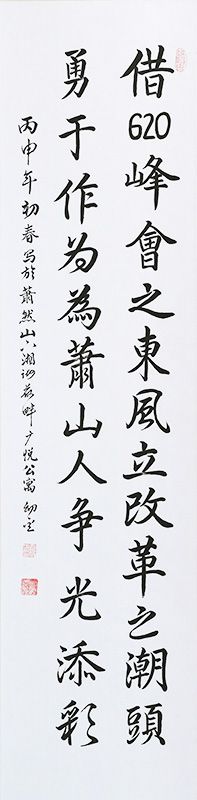 借G20峰會之東風立改革之潮頭
勇于作为為蕭山人争光添彩
丙申年初春写於蕭然山下湘湖